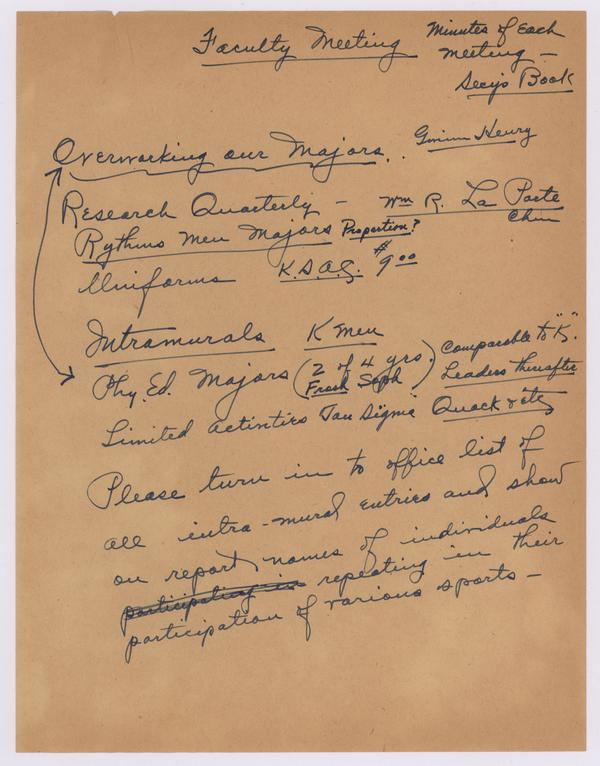 Faculty Meeting
Minutes of Each
Meeting —
Secy's Book
Overworking our Majors..
Henry
Research Quarterly — Wm R. La Porte
Chm
Rythms Men Majors Proportion?
Uniforms K.S.A.G. $9.00
Intramurals K Men
Phy. Ed. Majors (2 of 4 yrs.) Comparable to "K".
Frosh Soph Leaders thereafter
Limited activities Tau Sigma Quack & etc
Please turn in to office list of
all intra-mural entries and show
on report names of individuals
participating in repeating in their
participation of various sports —